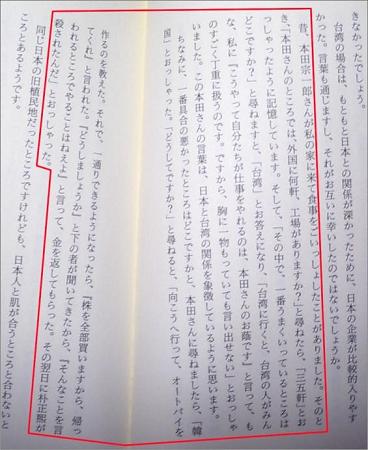 きなかったでしょう。
台湾の場合は、もともと日本との関係が深かったために、日本の企業が比較的入りやす
かった。言葉も通じますし、それがお互いに幸いしたのではないでしょうか。
昔、本田宗一郎さんが私の家に来て食事をごいっしょしたことがありました。そのと
き、「本田さんのところでは外国に何軒、工場がありますか?」と尋ねたら、「三五軒」とお
っしゃったように記憶しています。そして、「その中で、一番うまくいっているところは
どこですか?」と尋ねますと、「台湾」とお答えになり、「台湾に行くと、台湾の人がみん
な、私に『こうやって自分たちが仕事をやれるのは、本田さんのお蔭です』と言って、も
のすごく丁重に扱うのです。ですから、胸に一物もっていても言い出せない」とおっしゃ
いました。この本田さんの言葉は、日本と台湾の関係を象徴しているように思います。
ちなみに、一番具合の悪かったところはどこですかと、本田さんに尋ねましたら、「韓
国」とおっしゃった。「どうしてですか?」と尋ねると、「向こうへ行って、オートバイを
作るのを教えた。それで、一通りできるようになったら、『株を全部買いますから、帰っ
てくれ』と言われた。『どうしましょうか』と下の者が聞いてきたから、『そんなことを言
われるところでやることはねえよ』と言って、金を返してもらった。その翌日に朴正熙が
殺されたんだ」とおっしゃった。
同じ日本の旧植民地だったところですけれども、日本人と肌が合うところと合わないと
ころとあるようです。